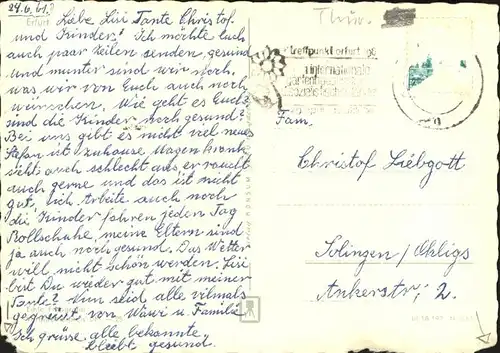 24.6.61.
Erfurt
Thür.
Liebe Lisi Tante Christof
und Kinder! Ich möchte Euch
auch paar Zeilen senden, gesund
und munter sind wir noch.
was, wir von Euch auch noch
wünschen. Wie geht es Euch?
sind die Kinder noch gesund?
Bei uns gibt es nicht viel neues
Stefan ist zuhause Magen krank
sieht auch schlecht aus, er raucht
auch gerne und das ist nicht
gut, ich Arbeite auch noch
die Kinder fahren jeden Tag
Rollschuhe, meine Eltern sind
ja auch noch gesund. Das Wetter
will nicht schön werden. Lisi
bist Du wieder gut mit meiner
Tante? Nun seid alle vilmals
gegrüsst von Wawi u Familie
Ich grüsse alle bekannte
bleibt gesund.
treffpunkt erfurt
internationale
Fam.
Christof Liebgott
Solingen/Ohligs
Ankerstr; 2.